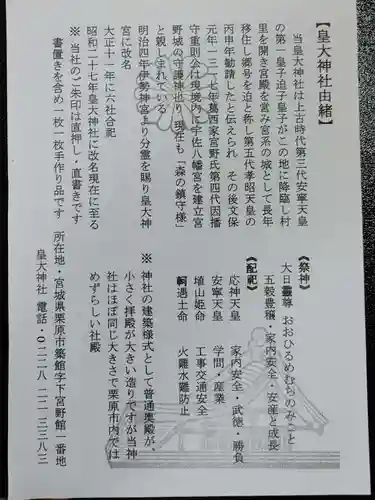 【皇大神社由緒】
当皇大神社は上古時代第三代安寧天皇
の第一皇子迫子皇子がこの地に降臨し村
里を開き宮殿を営み宮系の城として長年
移住し郷号を迫と称し第五代孝昭天皇の
丙申年勧請したと伝えられ その後文保
元年一三一七年葛西家宮野氏第四代因播
守重則公は現境内に宇佐八幡宮を建立宮
野城の守護神也り 現在も「森の鎮守様」
と親しまれている
明治四年伊勢神宮より分霊を賜り皇大神
宮に改名
大正十一年に六社合祀
昭和二十七年皇大神社に改名現在に至る
※ 当社のご朱印は直押し・直書きです
書置きを含め一枚一枚手作り品です
《祭神》
大日孁尊 おおひるめむちのみこと
五穀豊穣・家内安全・安産と成長
《配祀》
応神天皇 家内安全・武徳・勝負
安寧天皇 学問・産業
埴山姫命 工事交通安全
軻遇土命 火難水難防止
※ 神社の建築様式として普通奥殿が、
小さく拝殿が大きい造りですが当神
社はほぼ同じ大きさで栗原市内では
めずらしい社殿
所在地・宮城県栗原市築館字下宮野館一番地
皇大神社 電話・〇二二八-二二-三三八三